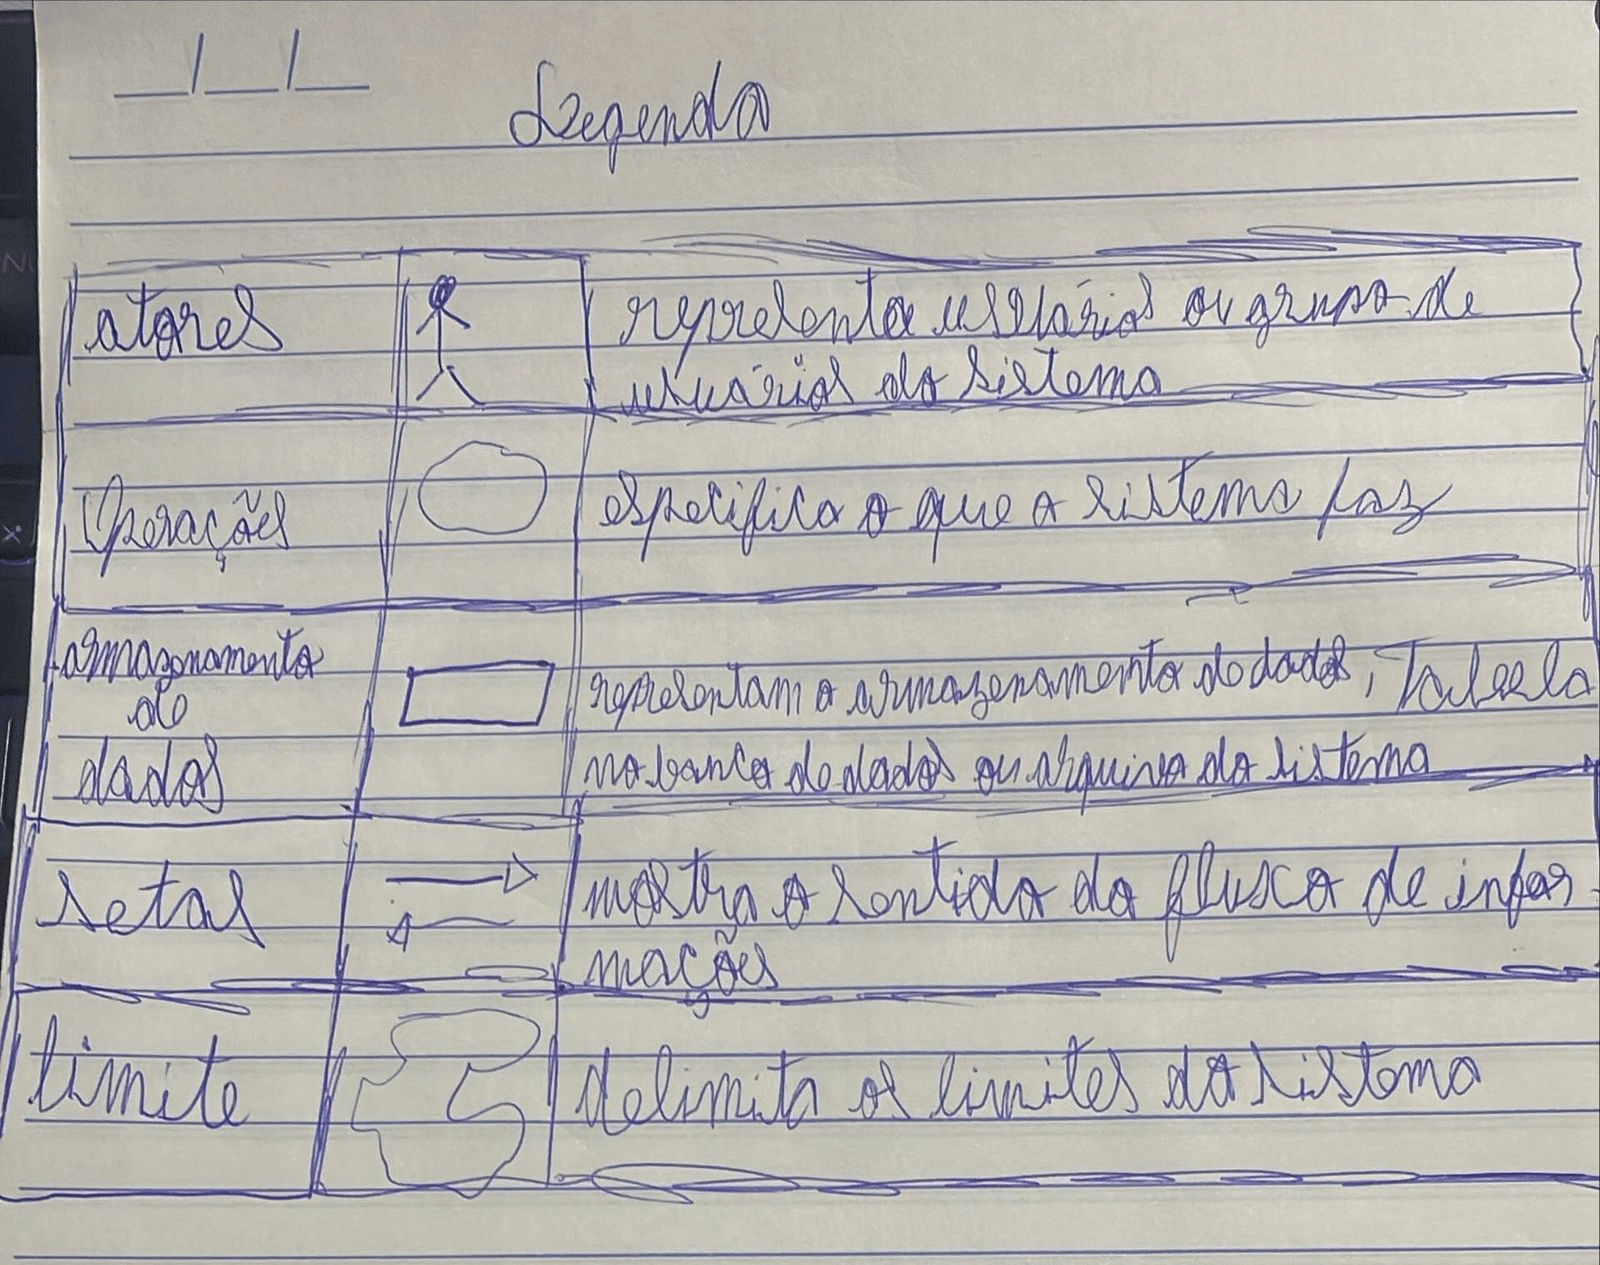 __/__/__
Legenda
atores
representa usuários ou grupo de
usuários do sistema
Operações
especifica o que o sistema faz
armazenamento
de
dados
representam o armazenamento de dados, Tabela
no banco de dados ou arquivo do sistema
setas
mostra o sentido do fluxo de infor-
mações
limite
delimita os limites do sistema